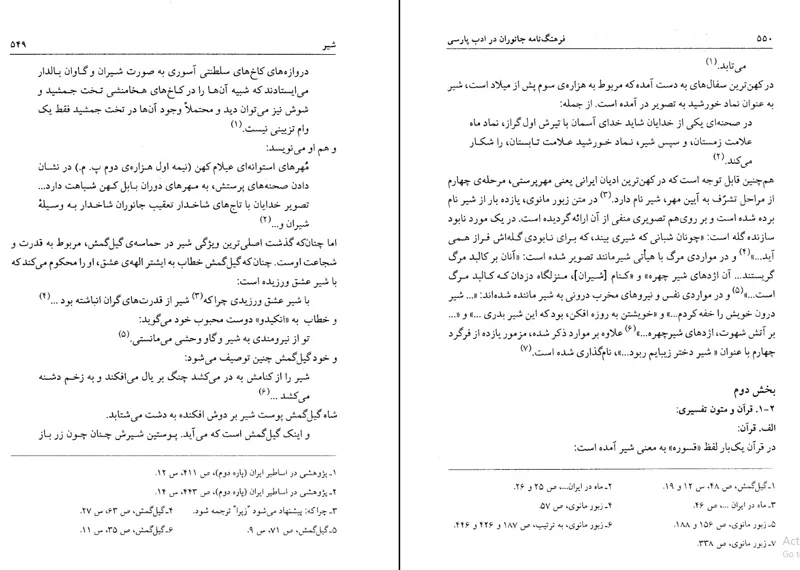 ۵۴۹
شیر
دروازه‌های کاخ‌های سلطنتی آسوری به صورت شیران و گاوان بالدار
می‌ایستادند که شبیه آن‌ها را در کاخ‌های هخامنشی تخت جمشید و
شوش نیز می‌توان دید و محتملاً وجود آن‌ها در تخت جمشید فقط یک
وام تزیینی نیست.(۱)
و هم او می‌نویسد:
مُهرهای استوانه‌ای عیلام کهن (نیمه اول هزاره‌ی دوم پ. م.) در نشان
دادن صحنه‌های پرستش، به مهرهای دوران بابل کهن شباهت دارد...
تصویر خدایان با تاج‌های شاخدار تعقیب جانوران شاخدار به وسیلهٔ
شیران و...(۲)
اما چنان‌که گذشت اصلی‌ترین ویژگی شیر در حماسه‌ی گیل‌گمش، مربوط به قدرت و
شجاعت اوست. چنان‌که گیل‌گمش خطاب به ایشتر الهه‌ی عشق، او را محکوم می‌کند که
با شیر عشق ورزیده است:
با شیر عشق ورزیدی چراکه(۳) شیر از قدرت‌های گران انباشته بود ...(۴)
و خطاب به «انکیدو» دوست محبوب خود می‌گوید:
تو از نیرومندی به شیر و گاو وحشی می‌مانستی.(۵)
و خود گیل‌گمش چنین توصیف می‌شود:
شیر را از کنامش به در می‌کشد چنگ بر یال می‌افکند و به زخم دشنه
می‌کشد ...(۶)
شاه گیل‌گمش پوست شیر بر دوش افکنده به دشت می‌شتابد.
و اینک گیل‌گمش است که می‌آید. پوستین شیرش چنان چون زر باز
۱ـ پژوهشی در اساطیر ایران (پاره دوم)، ص ۴۱۱، س ۱۲.
۲ـ پژوهشی در اساطیر ایران (پاره دوم)، ص ۴۴۳، س ۱۴.
۳ـ چرا که: پیشنهاد می‌شود "زیرا" ترجمه شود. ۴ـ گیل‌گمش، ص ۶۳، س ۲۷.
۵ـ گیل‌گمش، ص ۷۱، س ۹. ۶ـ گیل‌گمش، ص ۳۵، س ۱۱.
۵۵۰
فرهنگ‌نامه جانوران در ادب پارسی
می‌تابد.(۱)
در کهن‌ترین سفال‌های به دست آمده که مربوط به هزاره‌ی سوم پش از میلاد است، شیر
به عنوان نماد خورشید به تصویر در آمده است. از جمله:
در صحنه‌ای یکی از خدایان شاید خدای آسمان با تیرش اول گراز، نماد ماه
علامت زمستان، و سپس شیر، نماد خورشید علامت تابستان، را شکار
می‌کند.(۲)
هم‌چنین قابل توجه است که در کهن‌ترین ادیان ایرانی یعنی مهرپرستی، مرحله‌ی چهارم
از مراحل تشرّف به آیین مهر، شیر نام دارد.(۳) در متن زبور مانوی، یازده بار از شیر نام
برده شده است و بر روی‌هم تصویری منفی از آن ارائه گردیده است. در یک مورد نابود
سازنده گله است: «چونان شبانی که شیری بیند، که برای نابودی گله‌اش فراز همی
آید...»(۴) و در مواردی مرگ با هیأتی شیرمانند تصویر شده است: «آنان بر کالبد مرگ
گریستند... آن اژدهای شیر چهره» و «کنام [شیران]، منزلگاه دزدان که کالبد مرگ
است...»(۵) و در مواردی نفس و نیروهای مخرب درونی به شیر ماننده شده‌اند: «... شیر
درون خویش را خفه کردم...» و «خویشتن به روزه افکن، بود که این شیر بدری ...» و «...
بر آتش شهوت، اژدهای شیرچهره...»(۶) علاوه بر موارد ذکر شده، مزمور یازده از فرگرد
چهارم با عنوان « شیر دختر زیبایم ربود...»، نام‌گذاری شده است.(۷)
بخش دوم
۲-۱. قرآن و متون تفسیری:
الف. قرآن:
در قرآن یک‌بار لفظ «قسوره» به معنی شیر آمده است:
۱ـ گیل‌گمش، ص ۴۸، س ۱۲ و ۱۹. ۲ـ ماه در ایران...، ص ۲۵ و ۲۶.
۳ـ ماه در ایران ...، ص ۴۶. ۴ـ زبور مانوی، ص ۵۷.
۵ـ زبور مانوی، ص ۱۵۶ و ۱۸۸. ۶ـ زبور مانوی، به ترتیب، ص ۱۸۷ و ۴۲۶ و ۴۴۶.
۷ـ زبور مانوی، ص ۳۳۸.
Act
Go t